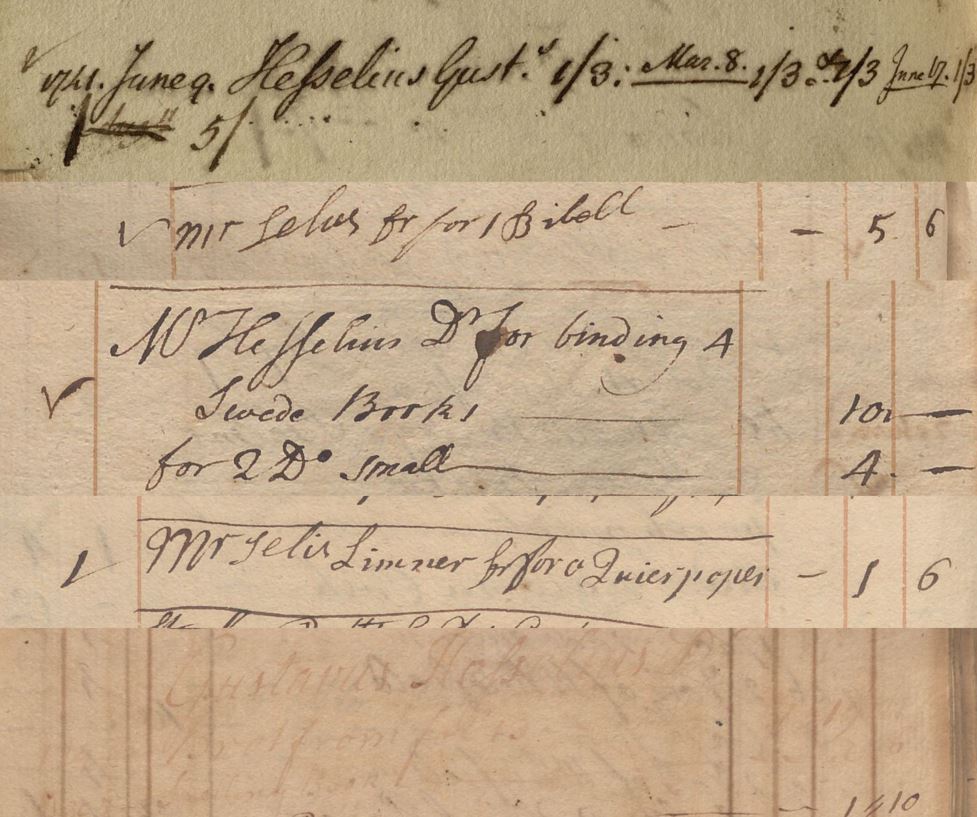 1741. June 9. Hesselius Gust.s 1/3: Mar. 8. 1/3. 1/3 June 17. 1/3
5/
Mr Selus Dr for 1 Bibell — — 5 6
Mr Hesselius Dr for binding 4
Swede Books — 10 —
for 2 Do small — 4 —
Mr Selis Limner Dr for a Quier paper — 1 6
Gustavus Hesselius
14 10